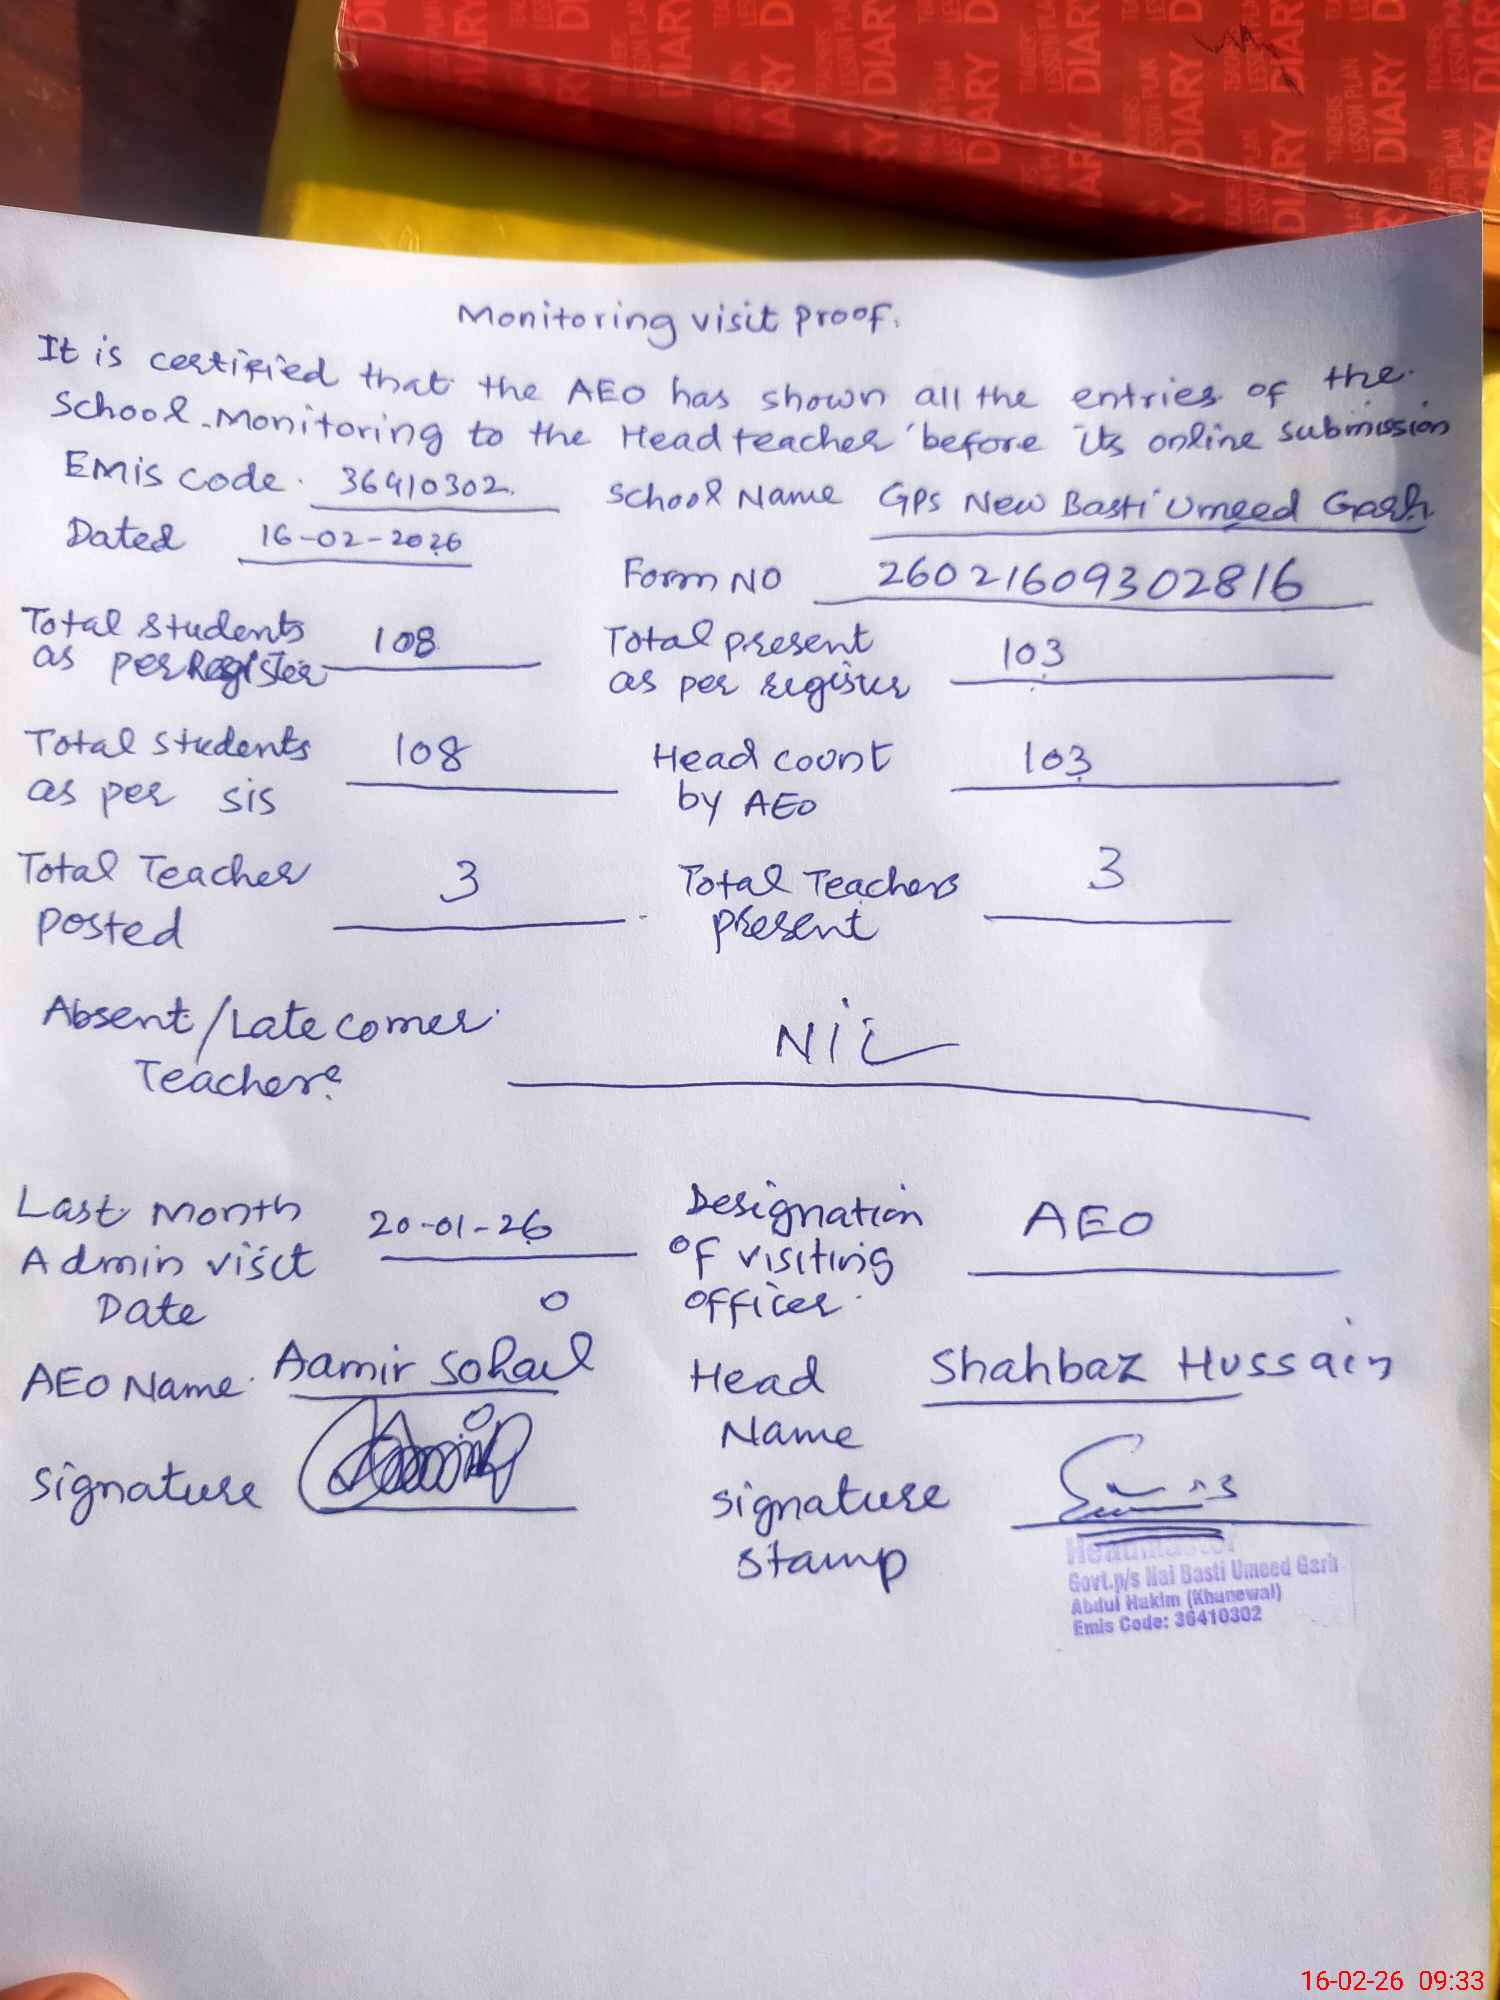 TEACHERS LESSON PLAN DIARY
Monitoring visit proof.
It is certified that the AEO has shown all the entries of the
School Monitoring to the Head teacher before its online submission
EMIS Code. 36410302. School Name GPS New Basti Umeed Garh
Dated 16-02-2026
Form NO 26021609302816
Total Students as per Register 108 Total present as per register 103
Total Students as per SIS 108 Head count by AEO 103
Total Teacher Posted 3 Total Teachers present 3
Absent/Late comer Teachers NIL
Last Month Admin visit Date 20-01-26 Designation of visiting officer AEO
AEO Name Aamir Sohail Head Name Shahbaz Hussain
Signature signature stamp
Headmaster
Govt.p/s Nai Basti Umeed Garh
Abdul Hakim (Khanewal)
Emis Code: 36410302
16-02-26 09:33